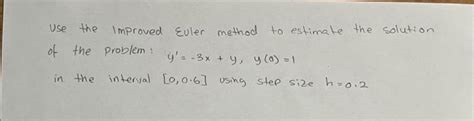 Use the Improved Euler method to estimate the solution
of the problem: y' = -3x + y, y(0) = 1
in the interval [0,0.6] using step size h=0.2